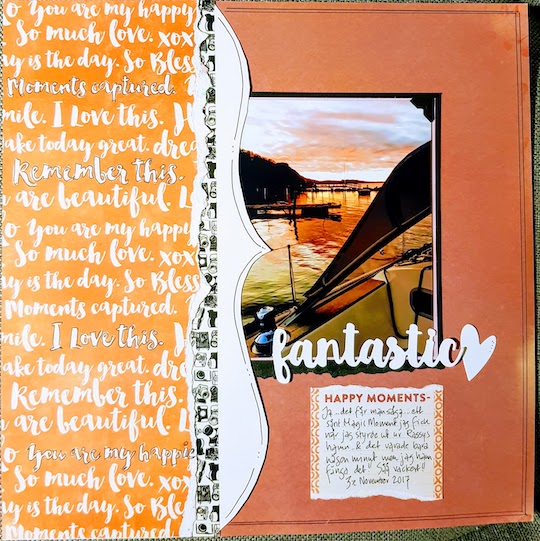 O You are my happy
So much love. xox
ay is the day. So Bless
Moments captured.
mile. I Love this. H
ake today great. drea
Remember this.
u are beautiful. L
O You are my happy
So much love. xox
ay is the day. So Bless
Moments captured.
mile. I Love this. H
ake today great. drea
Remember this.
u are beautiful. L
O You are my happi
So much love. xo
ay is the day. So Bless
Moments captured.
fantastic
HAPPY MOMENTS-
Ja...det får man säga...ett
sånt Magic Moment jag fick
när jag styrde ut ur Rossys
hamn & det varade bara
någon minut men jag hann
fånga det. Så vackert!!
November 2017